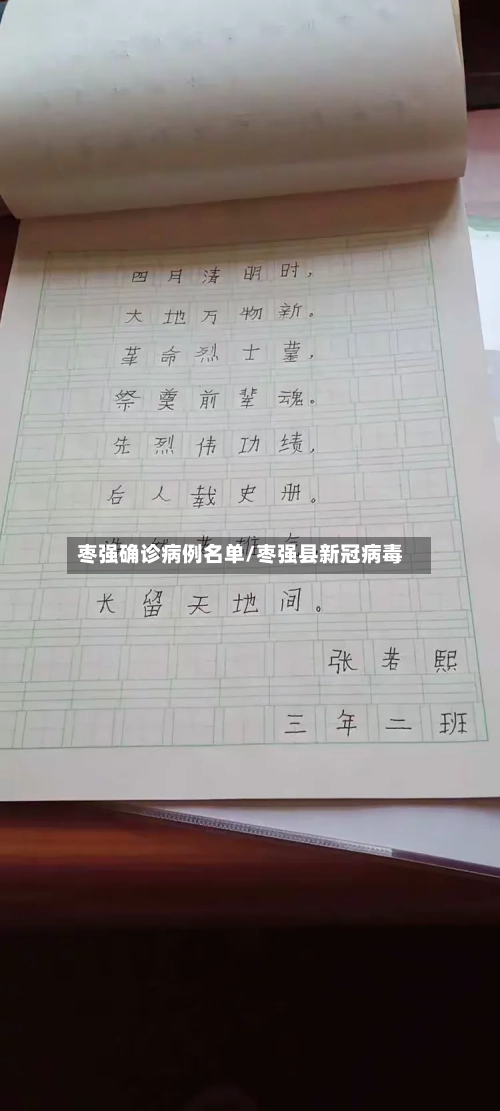 四月清明时，
大地万物新。
革命烈士墓，
祭奠前辈魂。
先烈伟功绩，
后人载史册。
枣强确诊病例名单/枣强县新冠病毒
长留天地间。
张若熙
三年二班